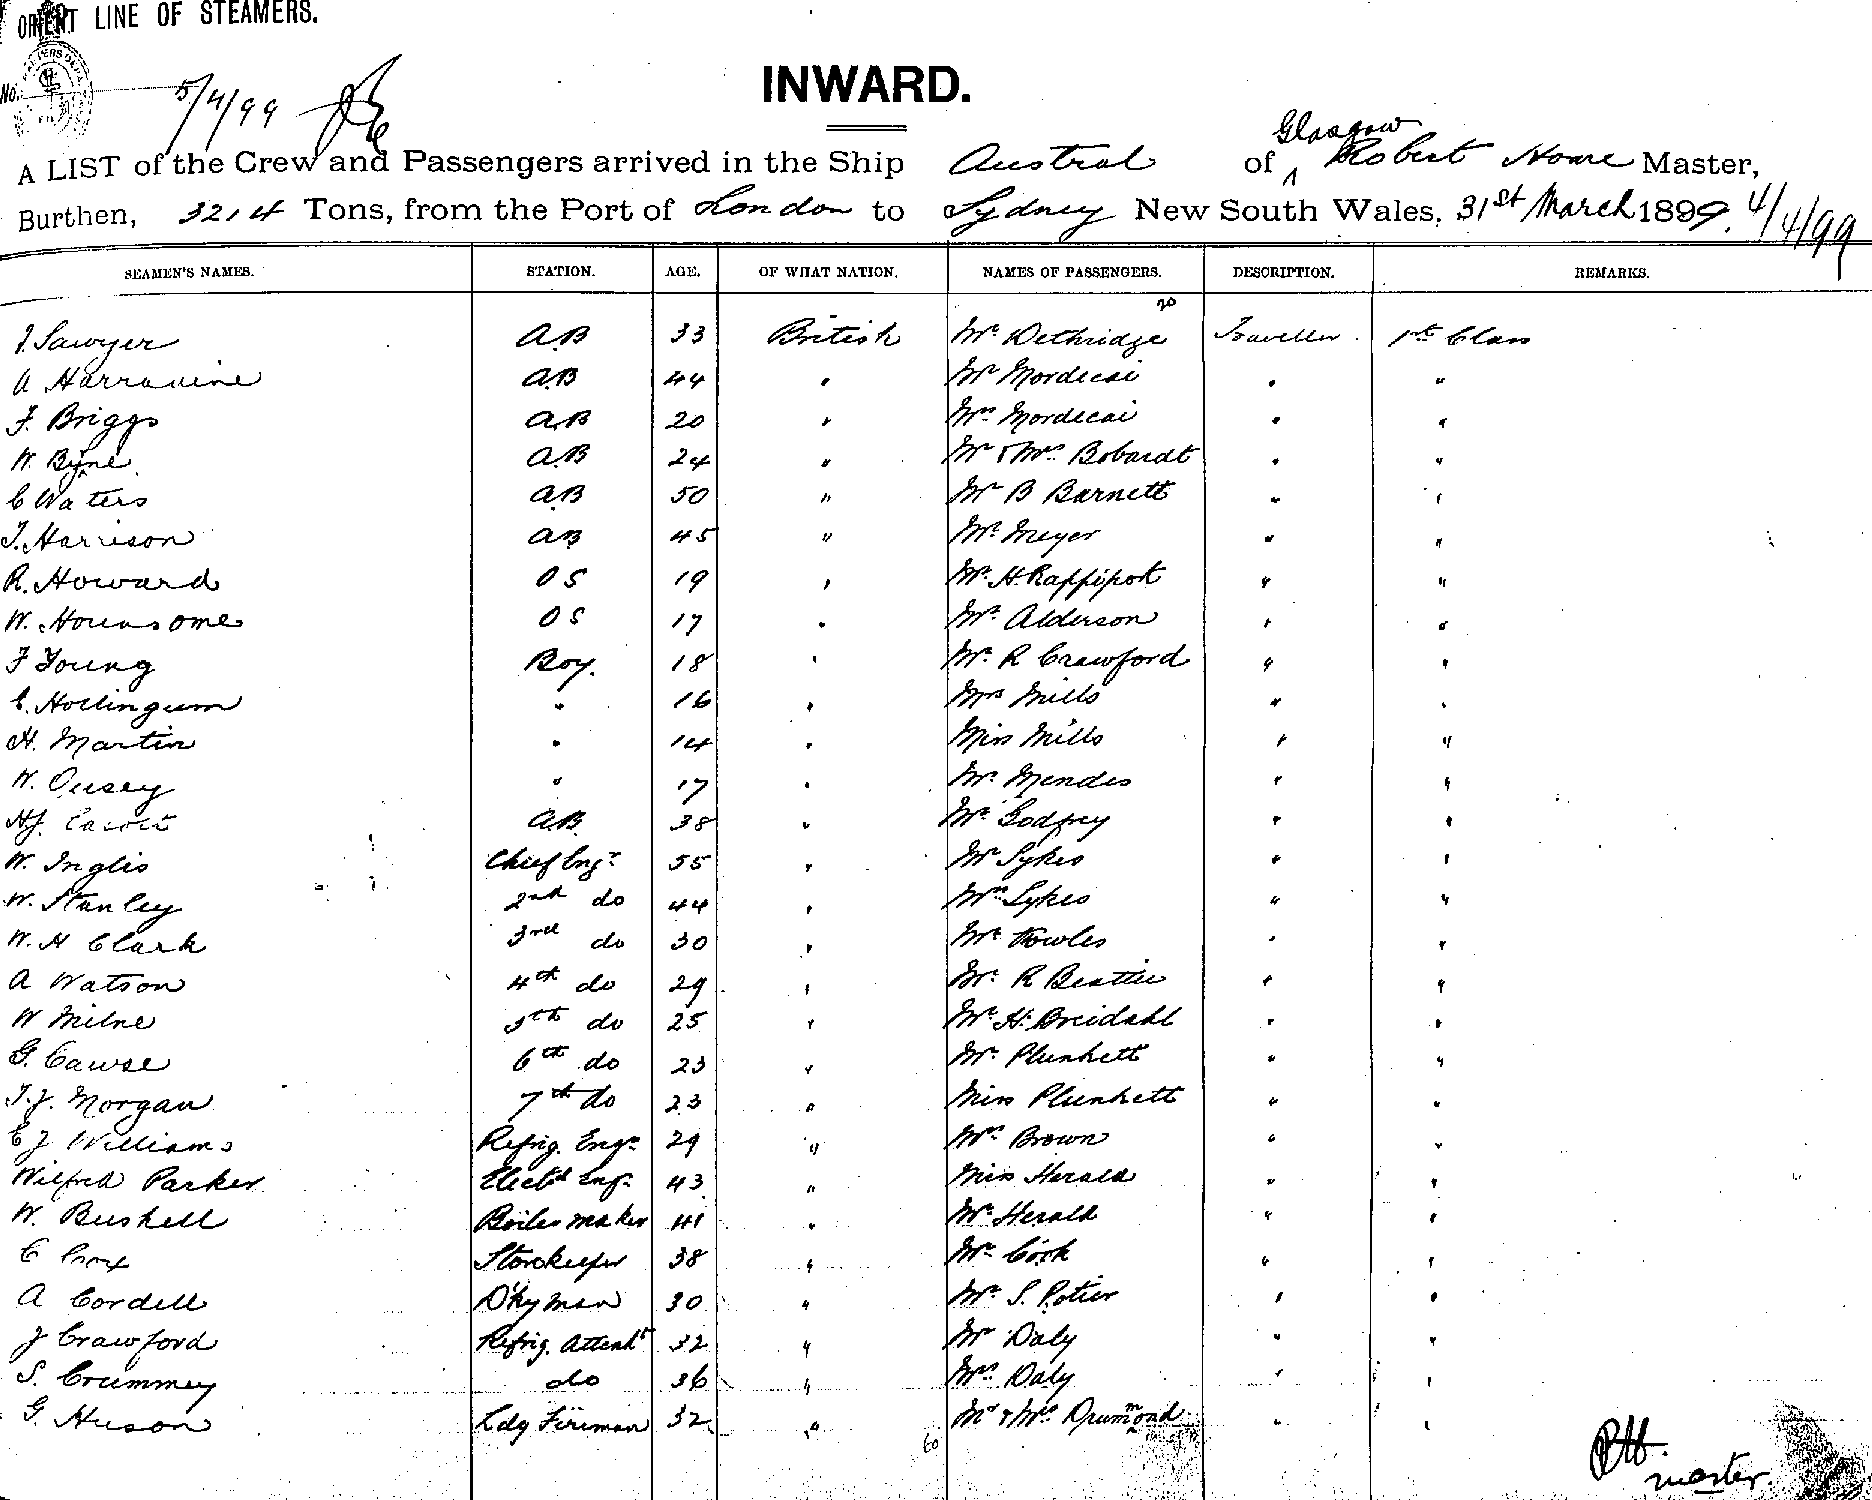 ORIENT LINE OF STEAMERS.
No.
5/4/99
INWARD.
Glasgow
A LIST of the Crew and Passengers arrived in the Ship Austral of ^ Robert Home Master,
Burthen, 3214 Tons, from the Port of London to Sydney New South Wales, 31st March 1899. 4/4/99
SEAMEN'S NAMES. STATION. AGE. OF WHAT NATION. NAMES OF PASSENGERS. DESCRIPTION. REMARKS.
20
J. Sawyer AB 33 British Mr Dethridge Traveller 1st Class
A AB 44 " Mr Mordecai " "
F. Briggs AB 20 " Mrs Mordecai " "
W. Byne AB 24 " Mr & Mrs Bobardt " "
C Waters AB 50 " Mr B Barnett " "
T. Harrison AB 45 " Mr. Meyer " "
R. Howard OS 19 " Mr. H. " "
W. Hounsome OS 17 " Mr. Alderson " "
F Young Boy. 18 " Mr. R Crawford " "
E. Hollingum " 16 " Mrs Mills " "
H. Martin " 14 " Miss Mills " "
W. Ousey " 17 " Mr. Mendes " "
H.J. AB 38 " Mr. Godfrey " "
W. Inglis Chief Engr 55 " Mr Sykes " "
W. Stanley 2nd do 44 " Mrs Sykes " "
W. H Clark 3rd do 30 " Mr Fowles " "
A Watson 4th do 29 " Mr. R Beattie " "
W Milne 5th do 25 " Mr. H. Breidahl " "
G. Cawse 6th do 23 " Mr. Plunkett " "
T. J. Morgan 7th do 23 " Miss Plunkett " "
E J Williams Refrig. Engr 29 " Mrs Brown " "
Wilfred Parker Elect'l Engr 43 " Miss Herald " "
W. Bushell Boiler maker 41 " Mr. Herald " "
C Storekeeper 38 " Mr. Cook " "
A Cordell D'ky man 30 " Mr. S. Potier " "
J Crawford Refrig. Attendt 32 " Mr Daly " "
S. Crummey do 36 " Mrs Daly " "
G. Huson Ldg Fireman 32 " Mr & Mrs Drummond " "
60
RH.
master.